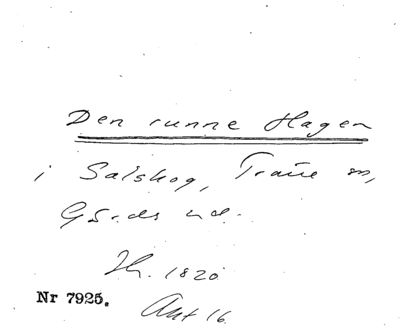 Den runne Hagen
i Salskog, Traue sn,
Gärds hd.
Th. 1820
Nr 7925. Akt 16.